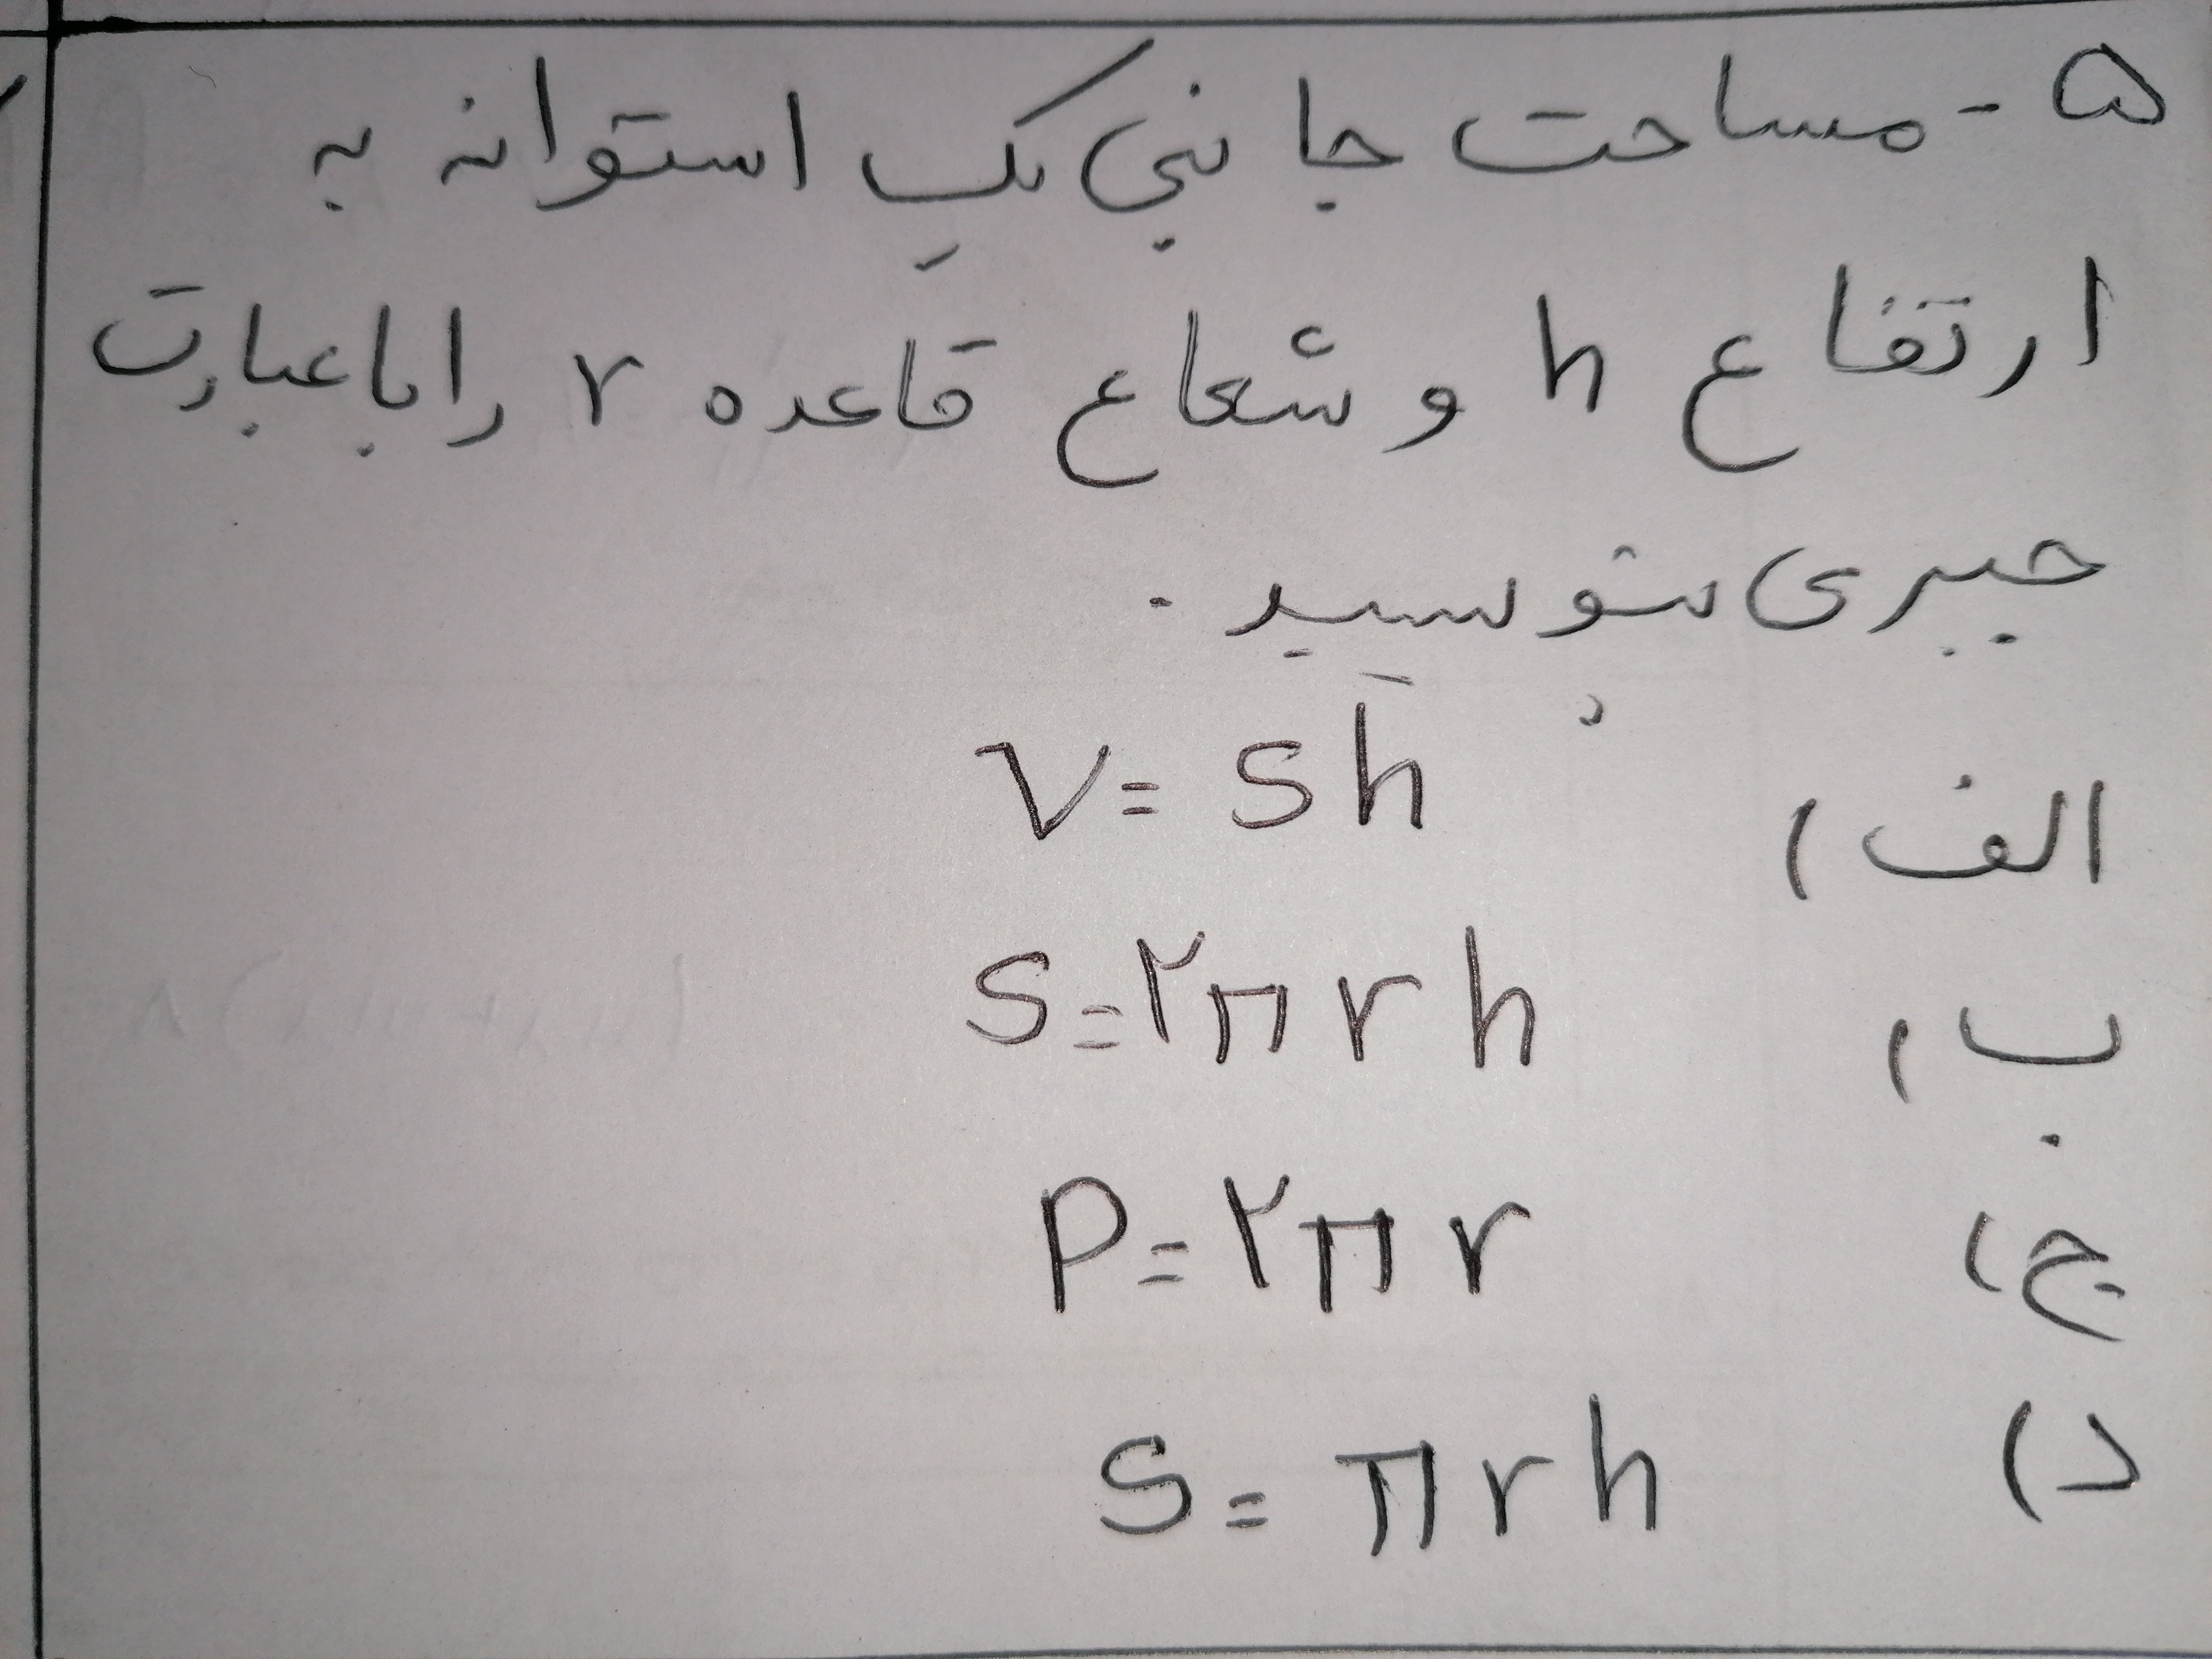 ۵ - مساحت جانبی یک استوانه به
ارتفاع h و شعاع قاعده r را با عبارت
جبری بنویسید .
الف) V = sh
ب) S = ۲πrh
ج) P = ۲πr
د) S = πrh